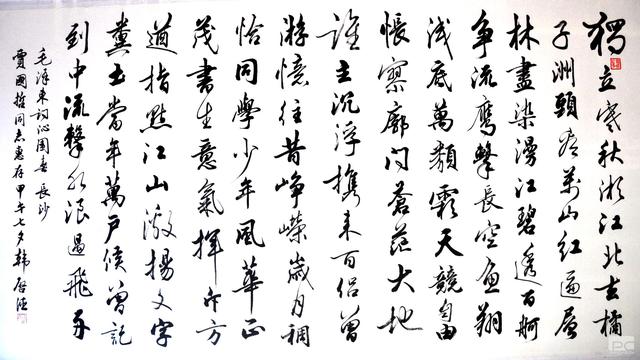 獨立寒秋湘江北去橘
子洲頭看萬山紅遍層
林盡染漫江碧透百舸
争流鹰擊長空魚翔
浅底萬類霜天競自由
悵寥廓问蒼茫大地
誰主沉浮携来百侣曾
游憶往昔峥嵘歲月稠
恰同學少年風華正
茂書生意氣揮斥方
遒指點江山激揚文字
糞土當年萬户侯曾記
到中流擊水浪遏飛舟
毛泽东词沁園春長沙
賈國哲同志惠存甲午七夕韩啟